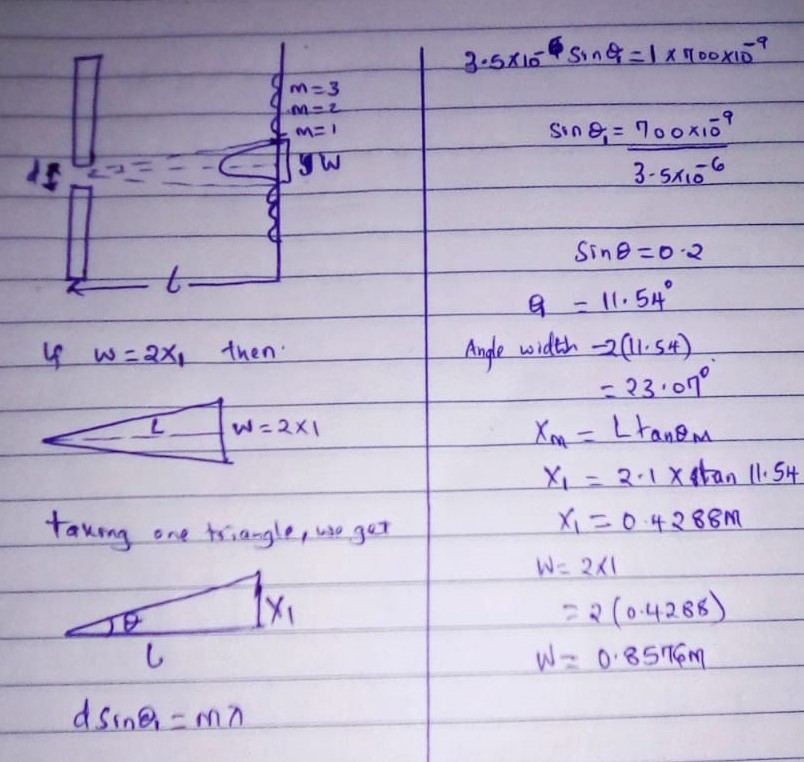 m=3
m=2
m=1
d
W
L
If W=2X₁ then.
L
W=2X1
taking one triangle, we get
θ
X₁
L
dsinθ₁=mλ
3.5X10⁻⁶ Sinθ₁=1X700X10⁻⁹
Sinθ₁=700X10⁻⁹
3.5X10⁻⁶
Sinθ=0.2
θ = 11.54°
Angle width -2(11.54)
=23.07°
Xm = LtanθM
X₁ = 2.1 X tan 11.54
X₁=0.4288M
W=2X1
=2(0.4288)
W= 0.8576M